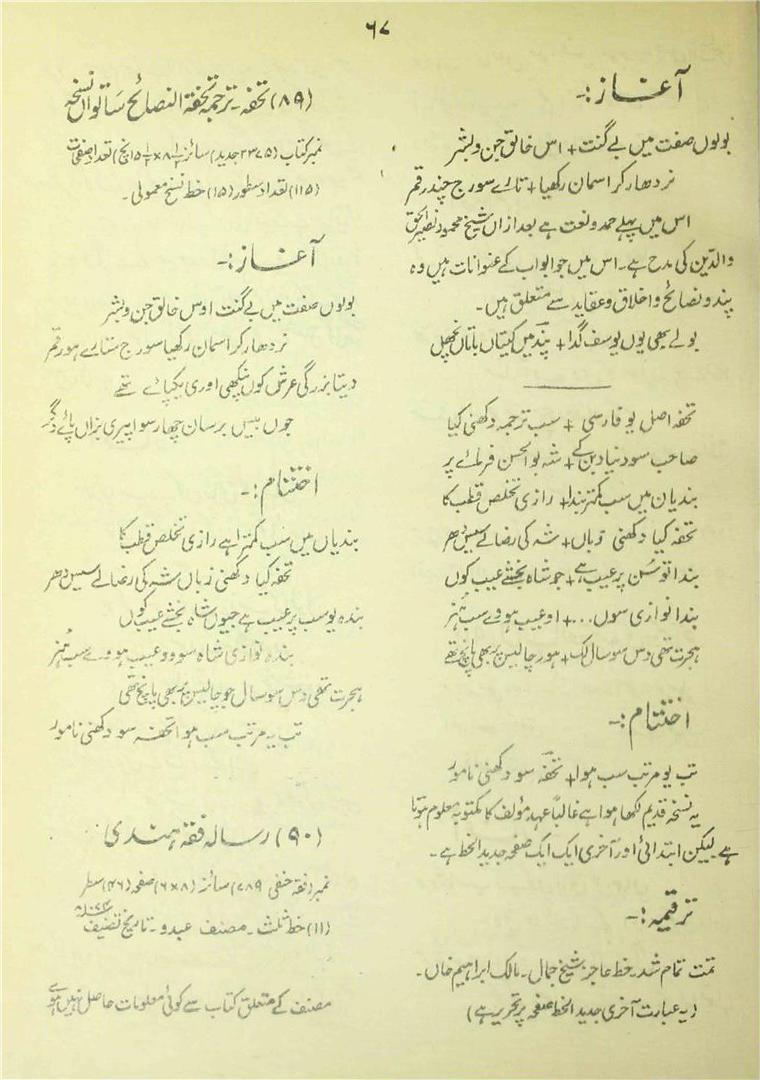 ۶۷
آغاز:۔
بولوں صفت میں بے گنت + اس خالق جن و بشر
نردھار کر اسمان رکھیا + تارے سورج چندر قمر
اس میں پہلے حمد و نعت ہے بعد ازاں شیخ محمود نصیر الحق
والدّین کی مدح ہے۔ اس میں جو ابواب کے عنوانات ہیں وہ
پند و نصائح و اخلاق و عقاید سے متعلق ہیں۔
بولے بھی یوں یوسف گدا + پند میں کیتاں باتاں
تحفہ اصل یو فارسی + سب ترجمہ دکھنی کیا
صاحب سو دنیا دین کے + شہ بوالحسن فرمائے پر
بندیان میں سب کمتر بندا + رازی تخلص قطب کا
تحفہ کیا دکھنی زباں + شہ کی رضا لے سیس دھر
بندا تو سُن پر عیب ہے + جو شاہ بخشے عیب کوں
بندا نوازی سوں ... + او عیب ہووے سب ہنر
ہجرت تھی دس سو سال لک + ہور چالیس پر بھی پانچ تھے
اختتام:۔
تب یو مرتب سب ہوا + تحفہ سو دکھنی نامور
یہ نسخہ قدیم لکھا ہوا ہے غالباً عہد مؤلف کا مکتوبہ معلوم ہوتا
ہے لیکن ابتدائی اور آخری ایک ایک صفحہ جدید الخط ہے۔
ترقیمہ:۔
تمت تمام شد۔ خط عاجز شیخ جمال۔ مالک ابراہیم خاں۔
(یہ عبارت آخری جدید الخط صفحہ پر تحریر ہے)
(۸۹) تحفہ۔ ترجمہ تحفۃ النصائح ساتواں نسخہ
نمبر کتاب (۲۳۷۵ جدید) سائز (۸½×۵½) انچ) تعداد صفحات
(۱۱۵) تعداد سطور (۱۵) خط نسخ معمولی۔
آغاز:۔
بولوں صفت میں بے گنت اوس خالق جن و بشر
نردھار کر اسمان رکھیا سورج ستارے ہور قمر
دیتا بزرگی عرش کوں تھے
جوں بیس برسان چھار سو اپیری بزاں پائے
اختتام:۔
بندیاں میں سب کمترا ہے رازی تخلص قطب کا
تحفہ کیا دکھنی زباں شہ کی رضا لے سیس دھر
بندہ یو سب پر عیب ہے جیوں شاہ بخشے عیب کوں
بندہ نوازی شاہ سوں و و عیب ہووے سب ہنر
ہجرت تھی دس سو سال جو چالیس پر بھی پانچ تھی
تب یہ مرتب سب ہوا تحفہ سو دکھنی نامور
(۹۰) رسالہ فقہ ہندی
نمبر (فقہ حنفی ۷۸۹) سائز (۸×۶) صفحہ (۴۶) سطر
(۱۱) خط ثلث۔ مصنف عبدو۔ تاریخ تصنیف
مصنف کے متعلق کتاب سے کوئی معلومات حاصل نہیں ہوئے